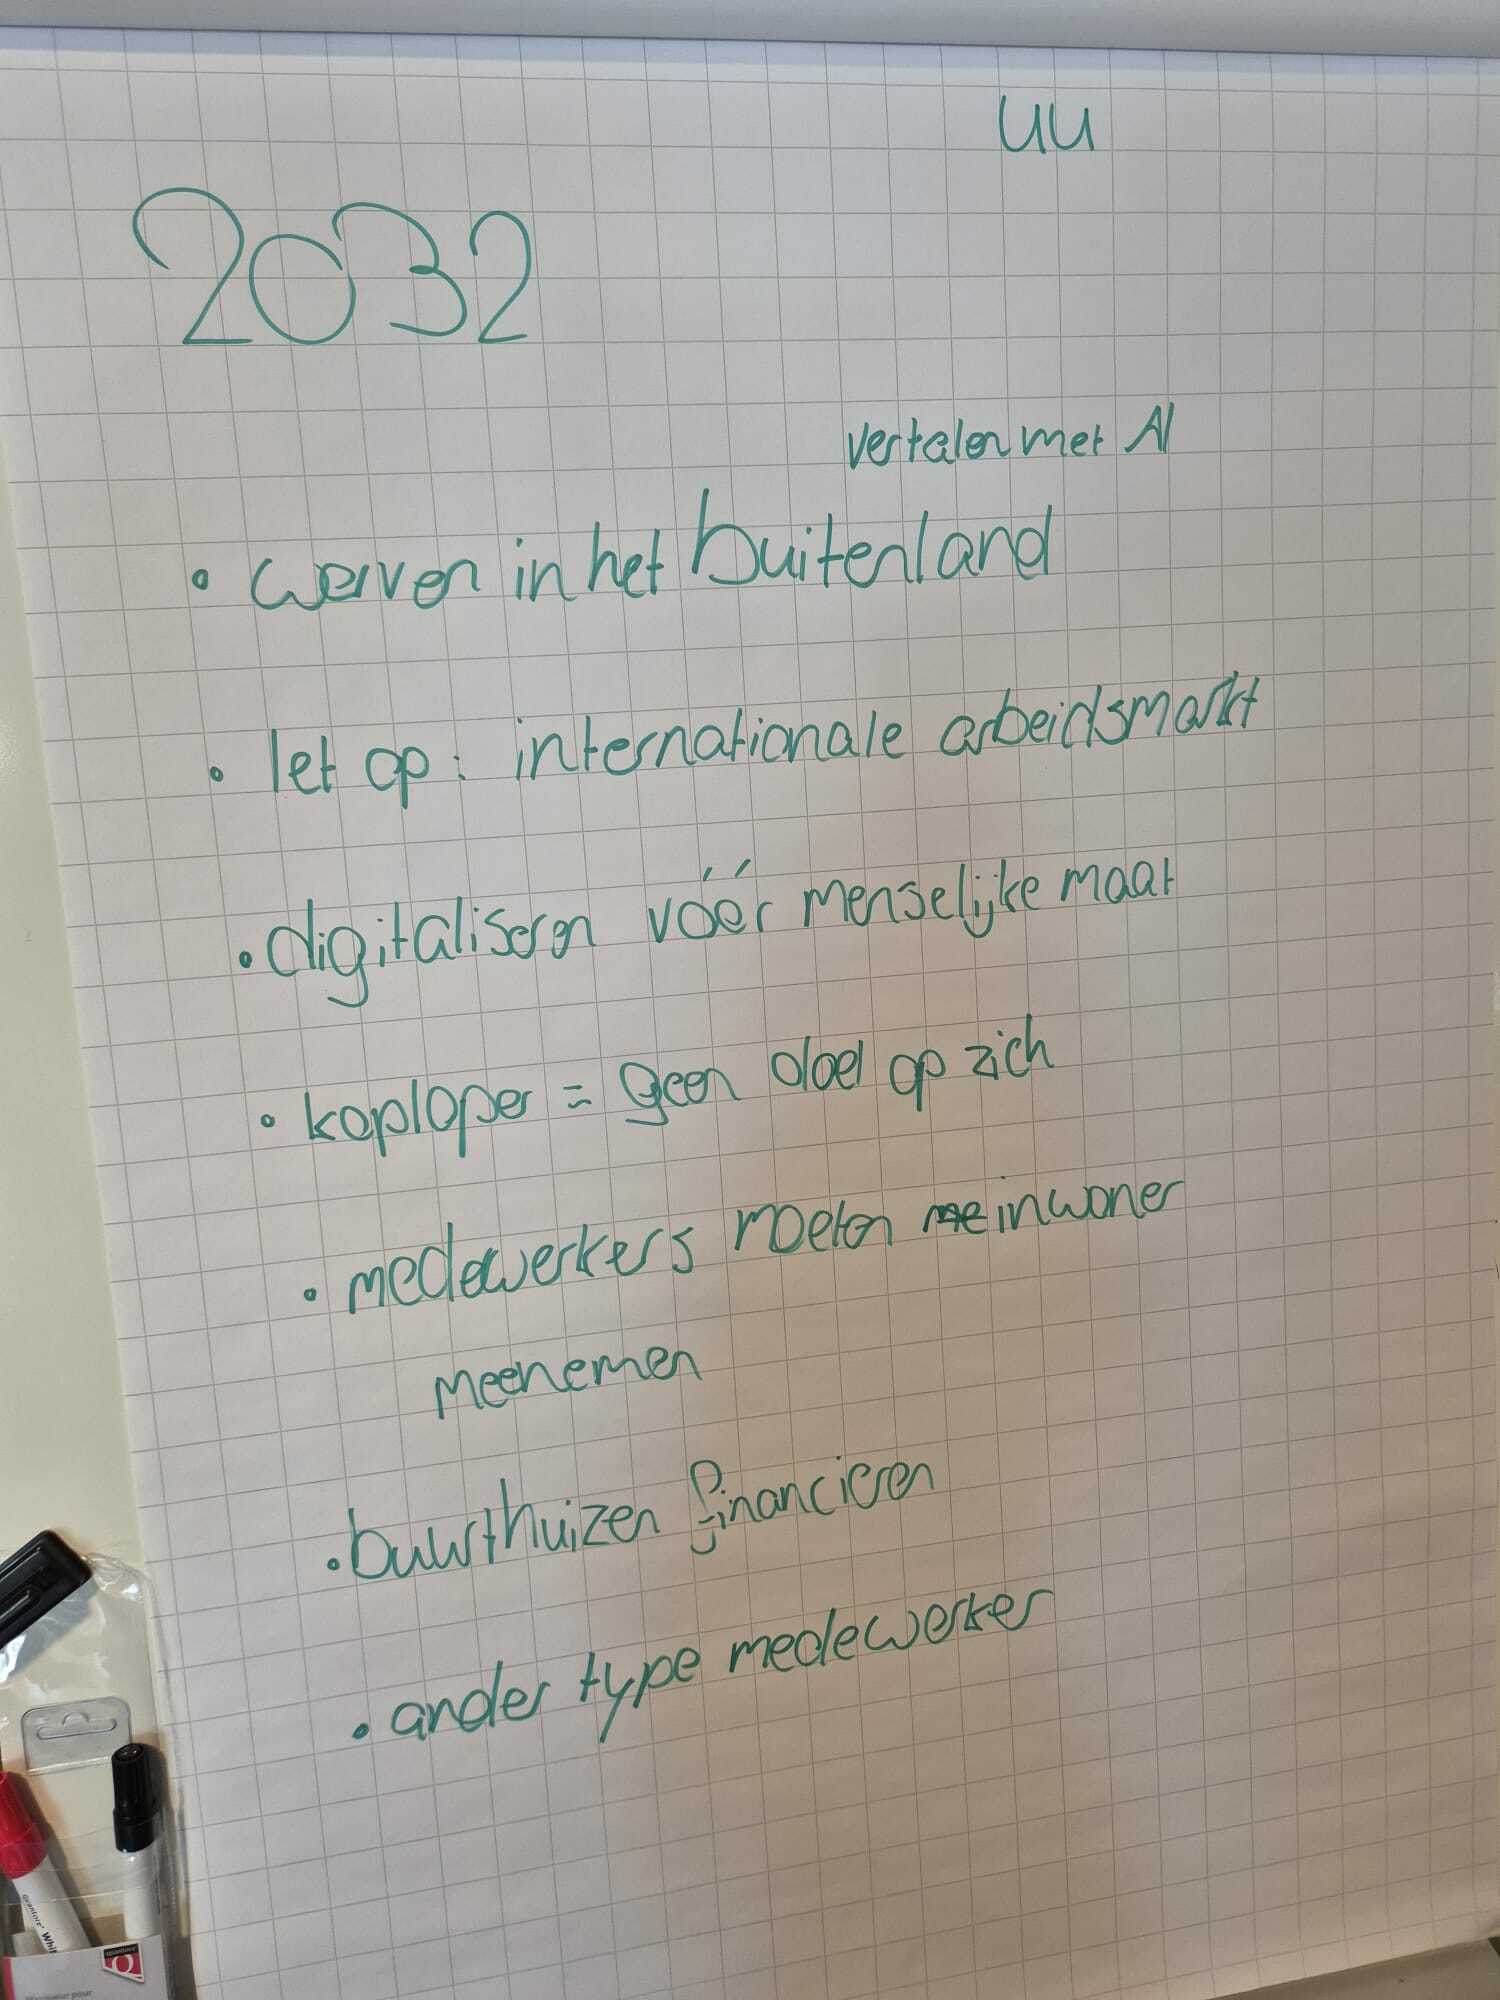 UU
2032
vertalen met AI
• werven in het buitenland
• let op: internationale arbeidsmarkt
• digitaliseren vóór menselijke maat
• koploper = geen doel op zich
• medewerkers moeten inwoner
meenemen
• buurthuizen financieren
• ander type medewerker
quantore
Q